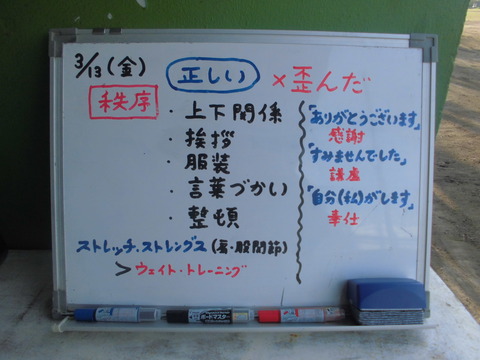 3/13(金)
正しい
×歪んだ
秩序
・上下関係
・挨拶
・服装
・言葉づかい
・整頓
「ありがとうございます」
感謝
「すみませんでした」
謙虚
「自分(私)がします」
奉仕
ストレッチ・ストレングス(肩・股関節)
>ウェイト・トレーニング
ボードマスター